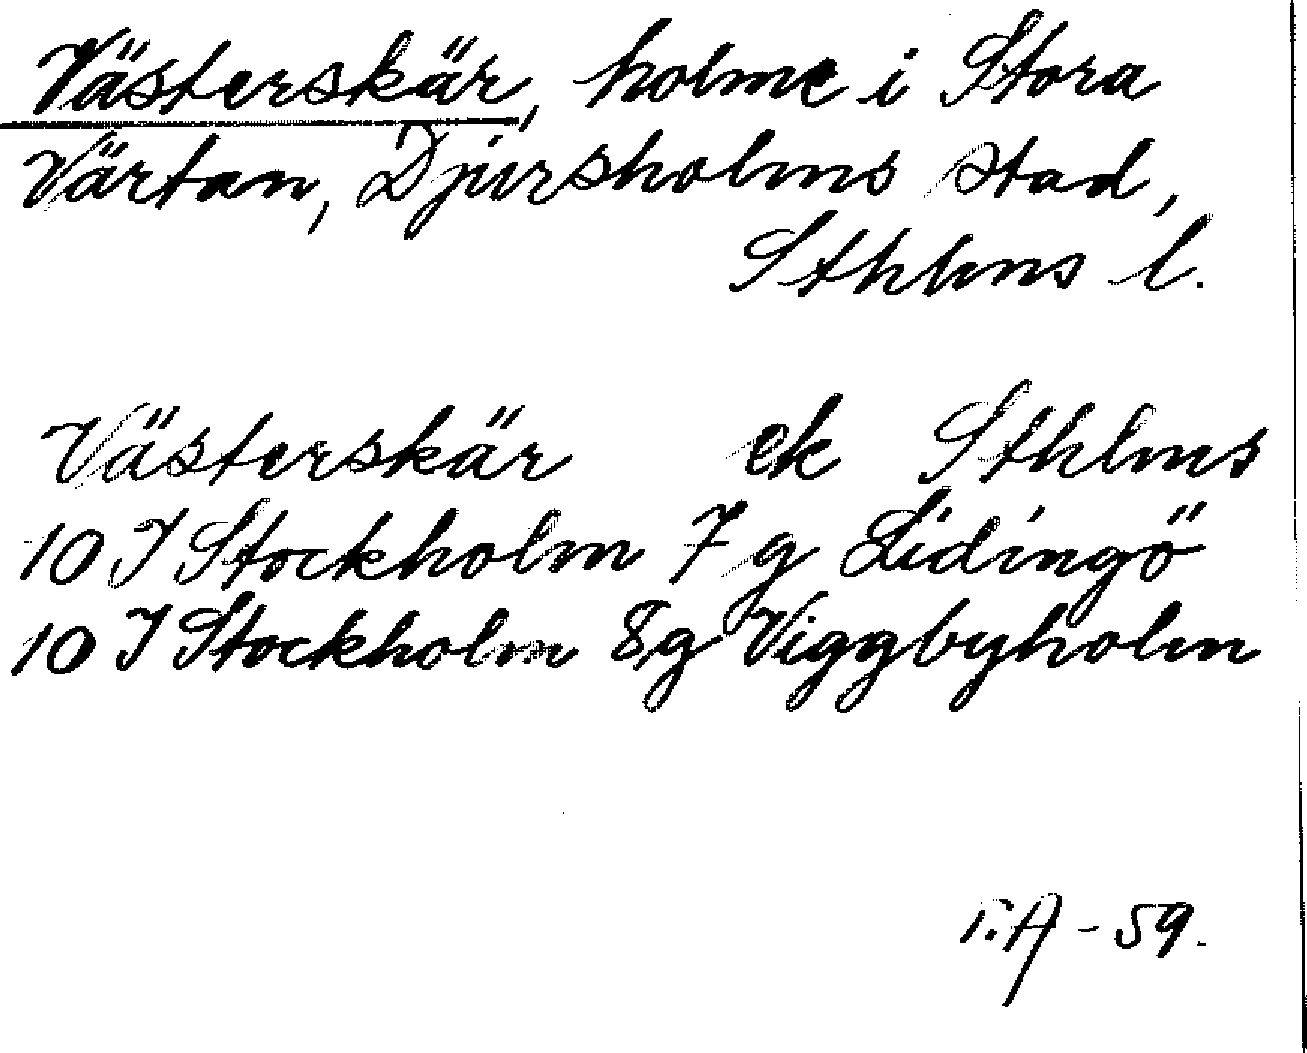 Västerskär, holme i Stora
Värtan, Djursholms stad,
Sthlms l.
Västerskär ek Sthlms
10 I Stockholm 7 g Lidingö
10 I Stockholm 8 g Viggbyholm
- 59.